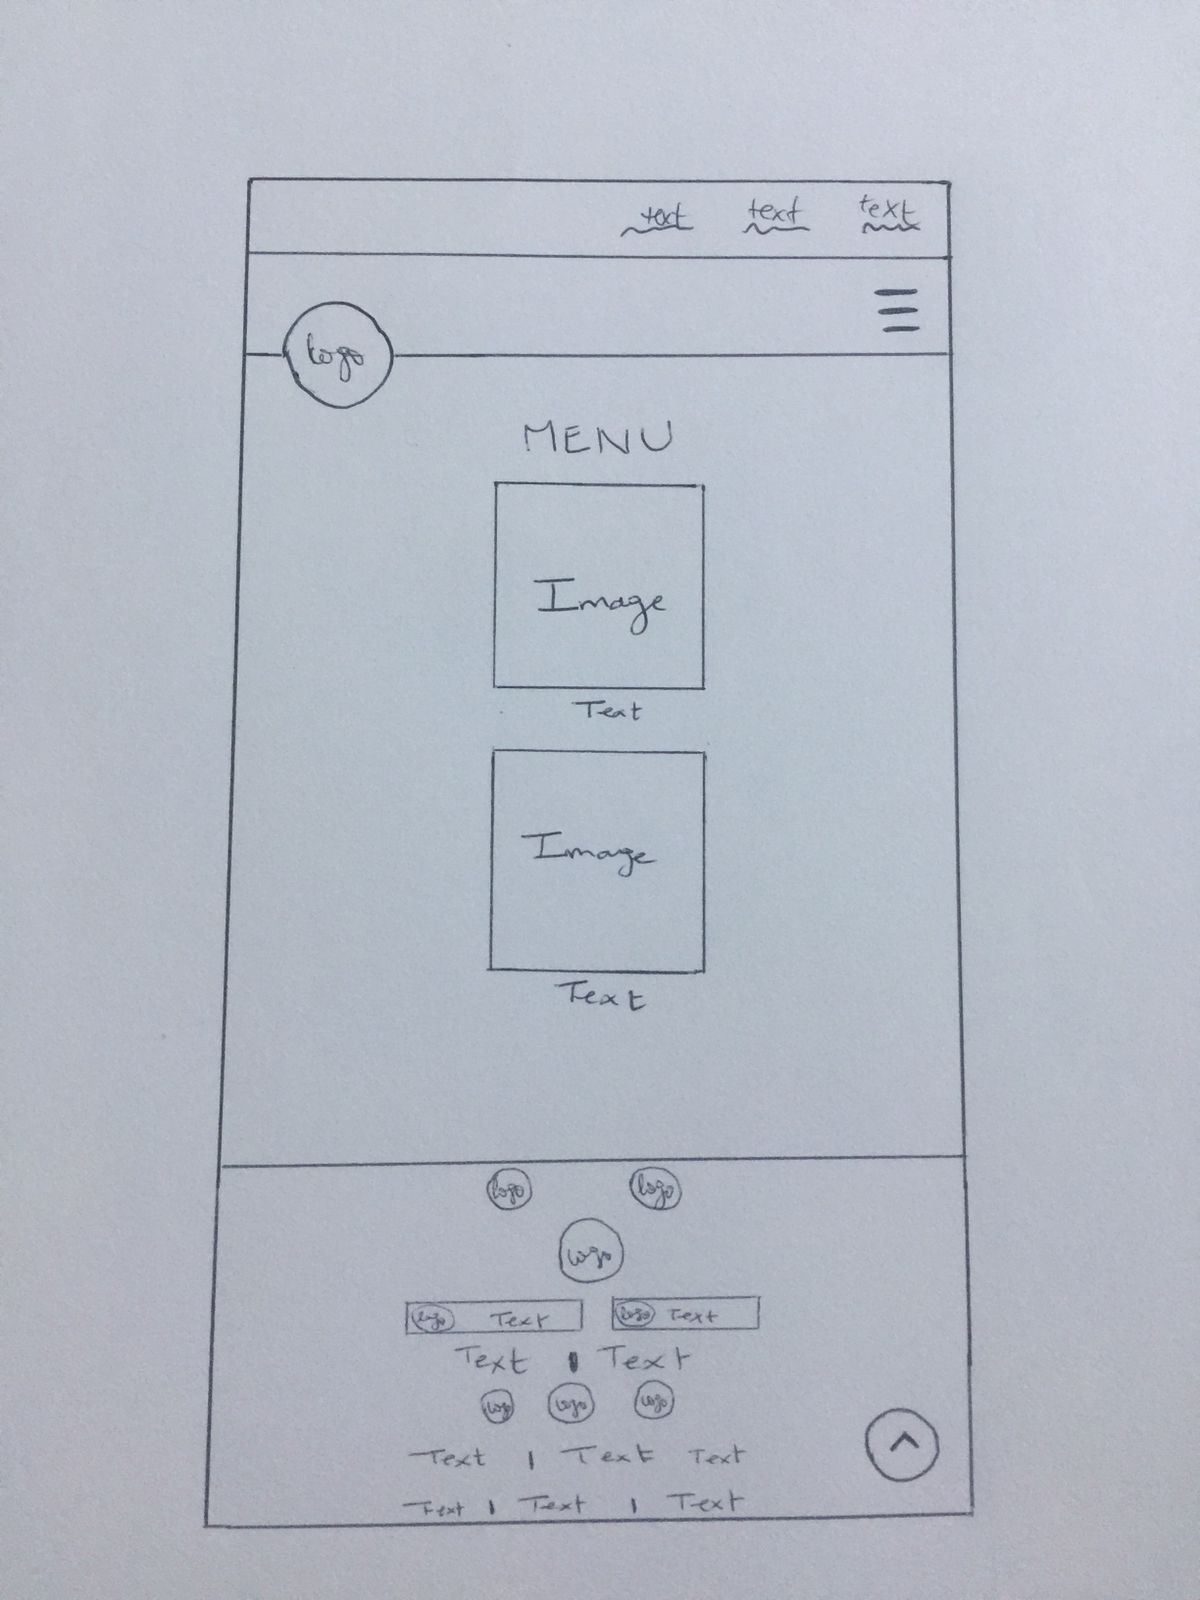 text text text
logo
MENU
Image
Text
Image
Text
logo logo
logo
logo Text logo Text
Text | Text
logo logo logo
Text | Text Text
Text | Text | Text